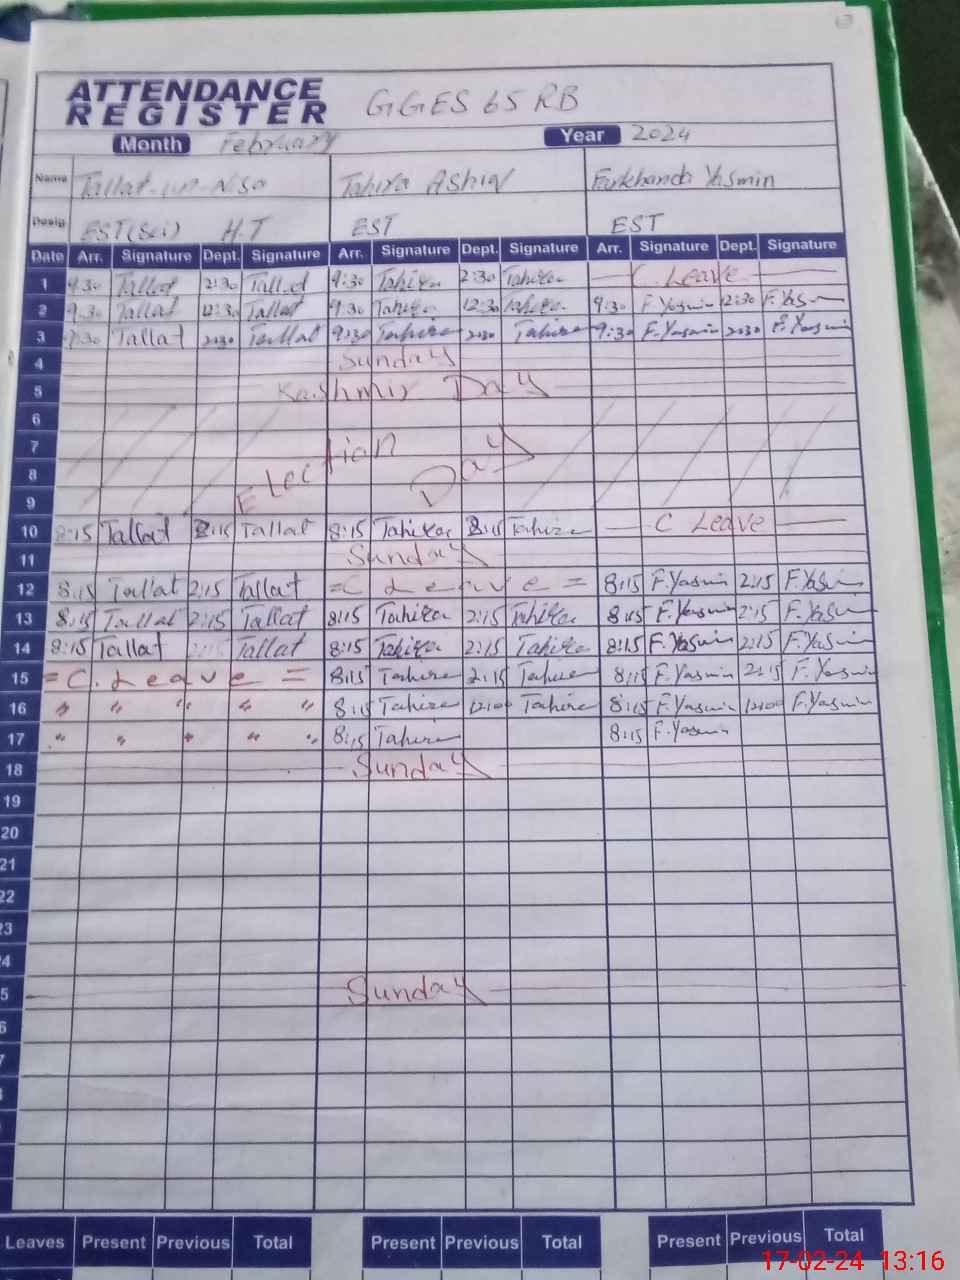 ATTENDANCE REGISTER GGES 65 RB
Month February Year 2024
Name Tallat-un-Nisa Tahira Ashiq Farkhanda Yasmin
Desig EST(Sci) H.T EST EST
Date Arr. Signature Dept. Signature Arr. Signature Dept. Signature Arr. Signature Dept. Signature
1 9:30 Tallat 2:30 Tallat 9:30 Tahira 2:30 Tahira C. Leave
2 9:30 Tallat 12:30 Tallat 9:30 Tahira 12:30 Tahira 9:30 F.Yasmin 12:30 F.Yasmin
3 9:30 Tallat 2:30 Tallat 9:30 Tahira 2:30 Tahira 9:30 F.Yasmin 2:30 F.Yasmin
4 Sunday
5 Kashmir Day
6
7
8 Election Day
9
10 8:15 Tallat 2:15 Tallat 8:15 Tahira 2:15 Tahira C Leave
11 Sunday
12 8:15 Tallat 2:15 Tallat = C Leave = 8:15 F.Yasmin 2:15 F.Yasmin
13 8:15 Tallat 2:15 Tallat 8:15 Tahira 2:15 Tahira 8:15 F.Yasmin 2:15 F.Yasmin
14 8:15 Tallat 2:15 Tallat 8:15 Tahira 2:15 Tahira 8:15 F.Yasmin 2:15 F.Yasmin
15 = C. Leave = 8:15 Tahira 2:15 Tahira 8:15 F.Yasmin 2:15 F.Yasmin
16 " " " " " 8:15 Tahira 12:00 Tahira 8:15 F.Yasmin 12:00 F.Yasmin
17 " " " " " 8:15 Tahira 8:15 F.Yasmin
18 Sunday
19
20
21
22
23
24
25 Sunday
Leaves Present Previous Total Present Previous Total Present Previous Total
17-02-24 13:16